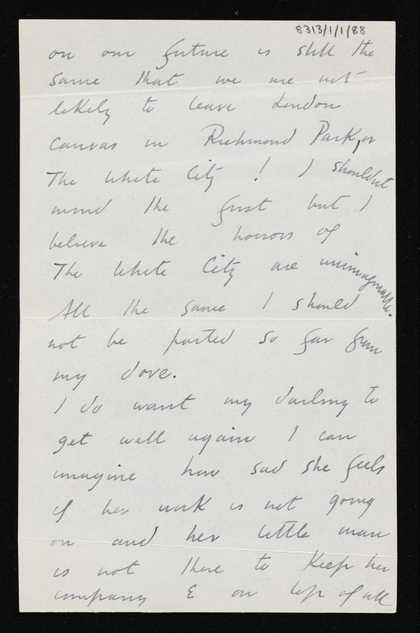 8313/1/1/88
on our future is still the
same that we are not
likely to leave London
Canvas in Richmond Park, or
The White City ! I shouldnt
mind the first but I
believe the horrors of
The White City are unimaginable.
All the same I should
not be parted so far from
my dove.
I do want my darling to
get well again I can
imagine how sad she feels
if her work is not going
on and her little man
is not there to keep her
company & on top of all